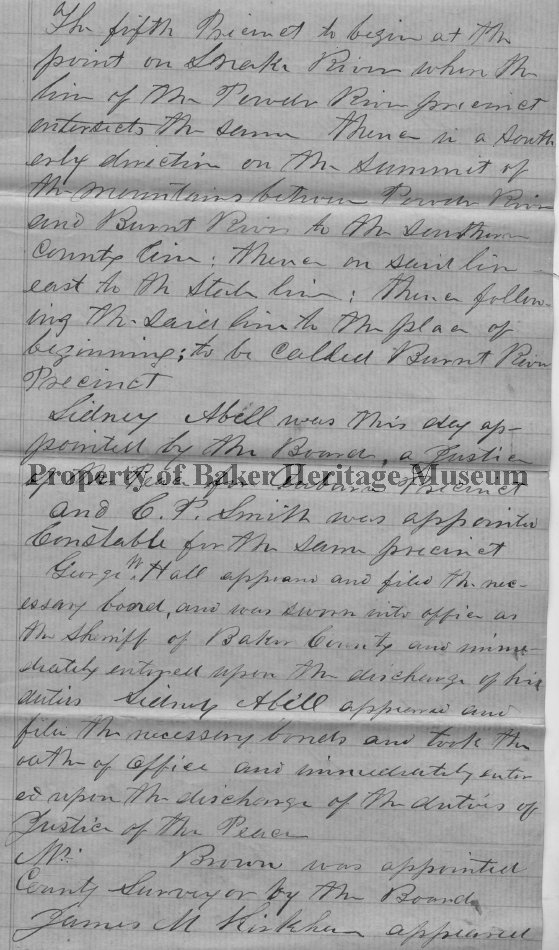 The fifth Precinct to begin at the
point on Snake River where the
line of the Powder River precinct
intersects the same thence in a south
erly direction on the summit of
the mountains between Powder River
and Burnt River to the southern
county line; thence on said line
east to the State line; thence follow-
ing the said line to the place of
beginning; to be called Burnt River
Precinct
Sidney Abell was this day ap-
pointed by the Board, a Justice
of the Peace for Auburn Precinct
Property of Baker Heritage Museum
and C. P. Smith was appointed
Constable for the same precinct
George W. Hall appeared and filed the nec-
essary bond, and was sworn into office as
the Sheriff of Baker County and imme-
diately entered upon the discharge of his
duties Sidney Abell appeared and
filed the necessary bonds and took the
oath of office and immediately enter
ed upon the discharge of the duties of
Justice of the Peace
Mr. Brown was appointed
County Surveyor by the Board
James M Kirkham appeared